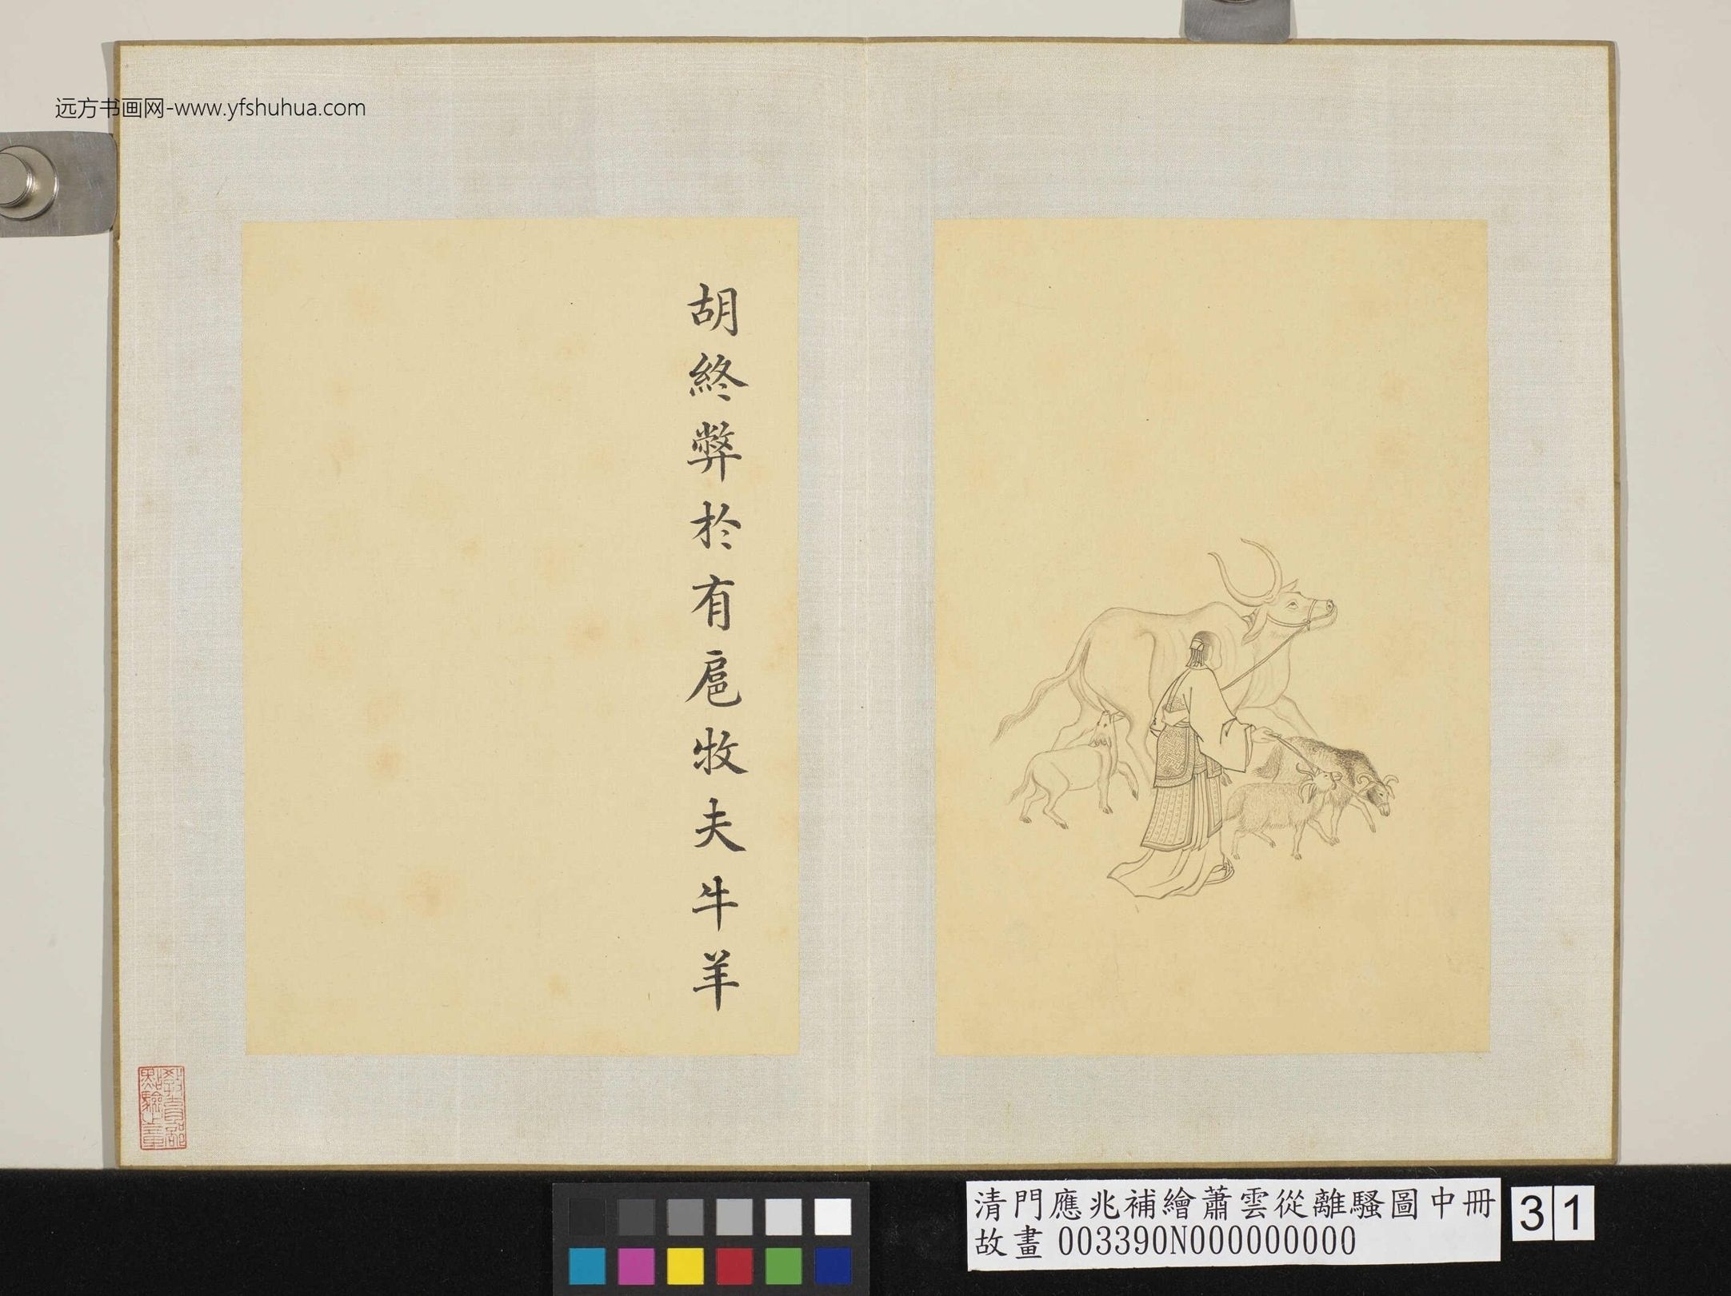 远方书画网-www.yfshuhua.com
胡終弊於有扈牧夫牛羊
教育部
點驗之章
清門應兆補繪蕭雲從離騷圖中冊
故畫 003390N000000000
31